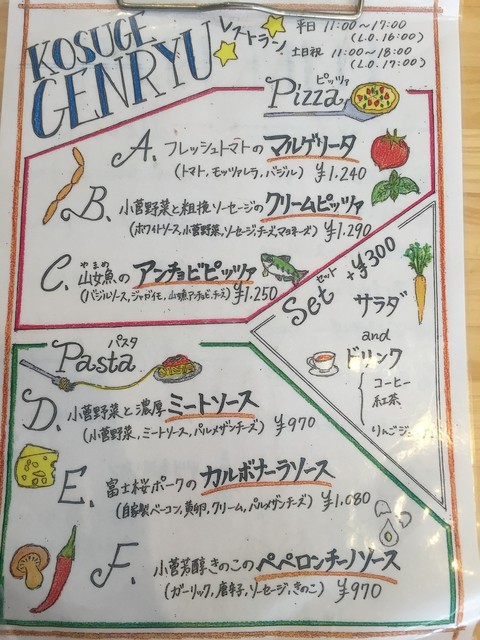 KOSUGE
GENRYU
レストラン
平日 11:00〜17:00
(L.O.16:00)
土日祝 11:00〜18:00
(L.O.17:00)
ピッツァ
Pizza
A. フレッシュトマトのマルゲリータ
(トマト,モッツァレラ,バジル) ¥1.240
B. 小菅野菜と粗挽ソーセージのクリームピッツァ
(ホワイトソース,小菅野菜,ソーセージ,チーズ,マヨネーズ) ¥1.290
C. 山女魚のアンチョビピッツァ
やまめ
(バジルソース,ジャガイモ,山女魚アンチョビ,チーズ) ¥1.250
Set セット +¥300
サラダ
and
ドリンク
コーヒー
紅茶
りんごジュース
Pasta パスタ
D. 小菅野菜と濃厚ミートソース
(小菅野菜,ミートソース,パルメザンチーズ) ¥970
E. 富士桜ポークのカルボナーラソース
(自家製ベーコン,黄卵,クリーム,パルメザンチーズ) ¥1.080
F. 小菅芳醇きのこのペペロンチーノソース
(ガーリック,唐辛子,ソーセージ,きのこ) ¥970